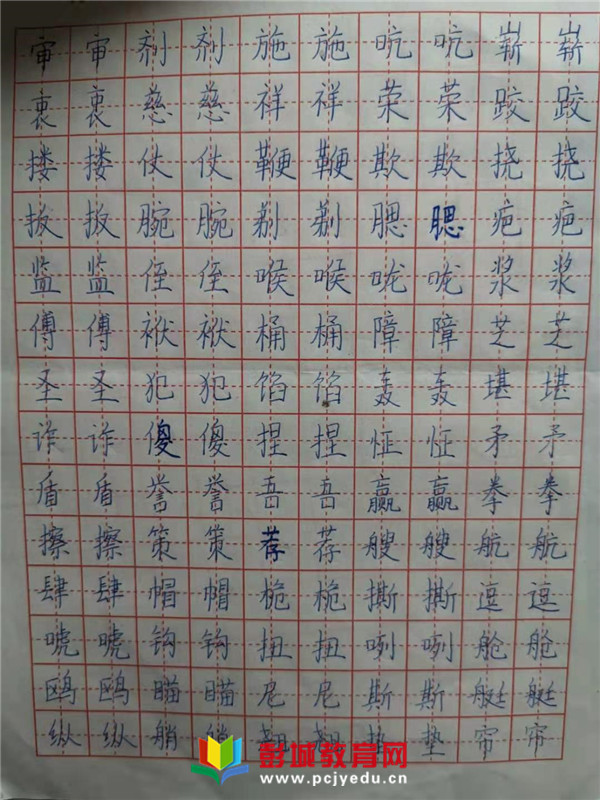 审审剂剂施施吭吭崭崭
衷衷慈慈祥祥荣荣跤跤
搂搂仗仗鞭鞭欺欺挠挠
扳扳腕腕剔剔腮腮疤疤
监监侄侄喉喉咙咙浆浆
傅傅袱袱桶桶障障芝芝
圣圣犯犯馅馅轰轰堪堪
诈诈傻傻捏捏怔怔矛矛
盾盾誉誉吾吾赢赢拳拳
擦擦策策荐荐艘艘航航
肆肆帽帽桅桅撕撕逗逗
唬唬钩钩扭扭咧咧舱舱
鸥鸥瞄瞄尼尼斯斯艇艇
纵纵艄艄翘翘垫垫帘帘
彭城教育网
www.pcjyedu.cn